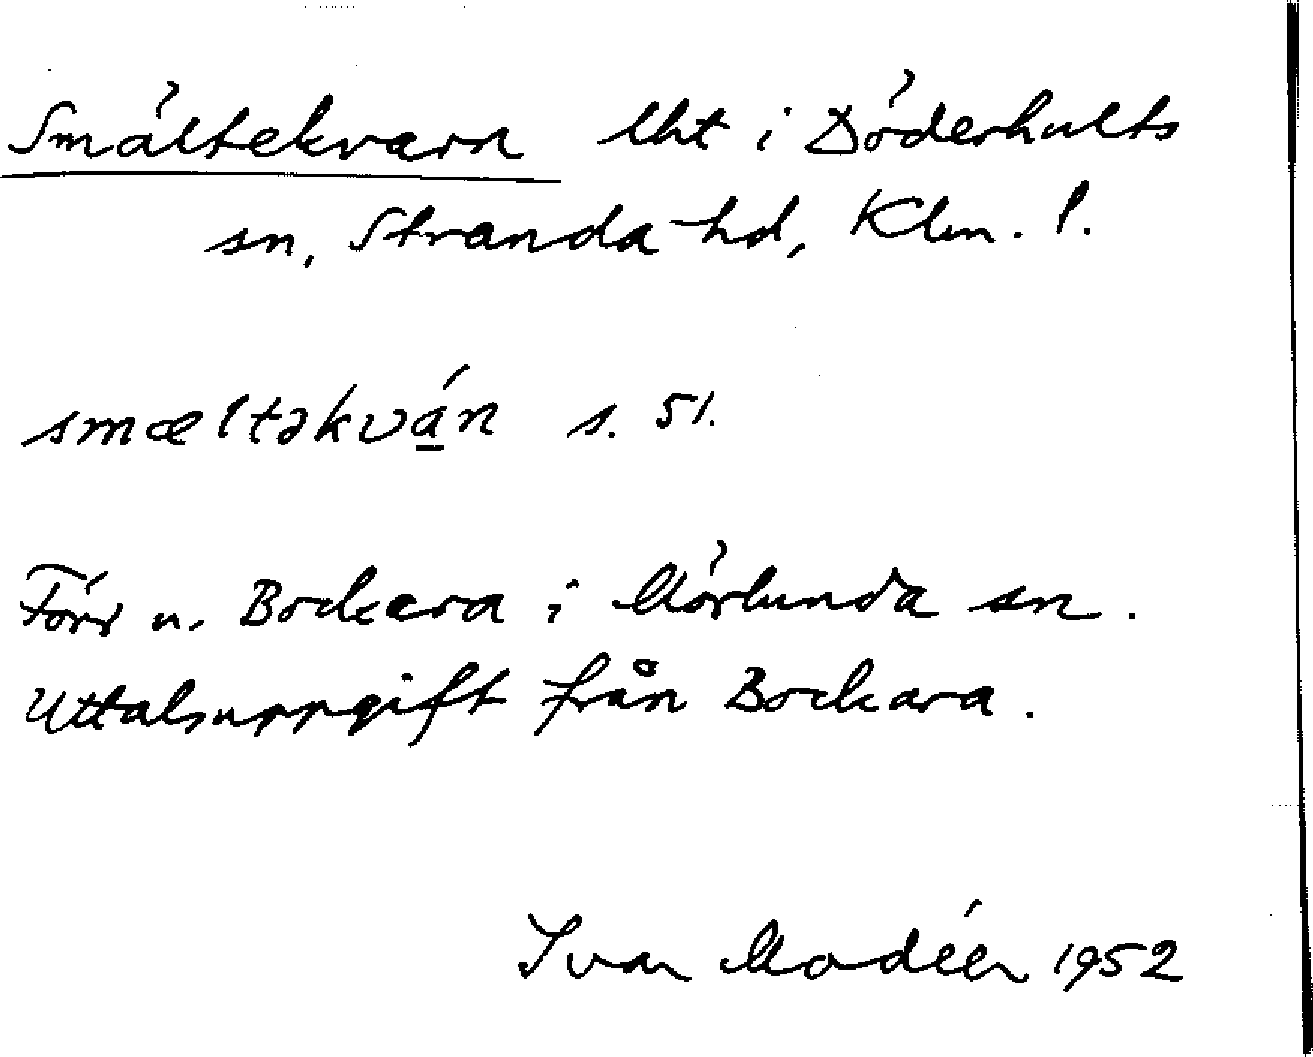 Smältekvarn lht i Döderhults
sn, Stranda hd, Klm. l.
smæltəkván s. 51.
Förr u. Bockara i Mörlunda sn.
Uttalsuppgift från Bockara.
Ivar Modéer 1952